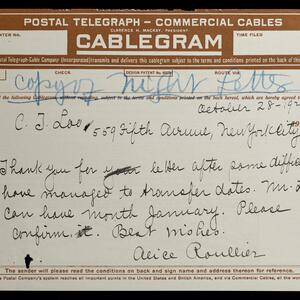 POSTAL TELEGRAPH - COMMERCIAL CABLES
CLARENCE H. MACKAY, PRESIDENT
TIME FILED
CABLEGRAM
Postal Telegraph-Cable Company (Incorporated) transmits and delivers this cablegram subject to the terms and conditions printed on the back of this
CHECK
DESIGN PATENT No.
ROUTE VIA
copy of Night Letter
the following Cablegram, subject to the terms and conditions printed on the back hereof, which are hereby
October 28-19
C. T. Loo
559 Fifth Avenue, New York City
Thank you for your letter after some diffi
have managed to transfer dates. Mr.
can have month January. Please
confirm it. Best wishes.
Alice Roullier
The sender will please read the conditions on back and sign name and address thereon for reference.
Postal Company's system reaches all important points in the United States and British America, and via Commercial Cables, all the